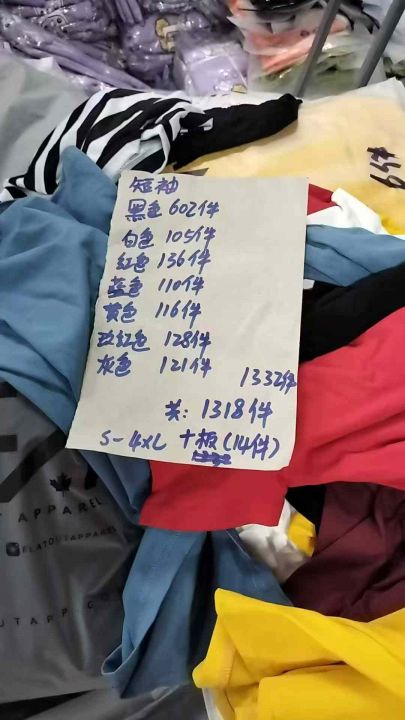 短袖
黑色 602件
白色 105件
红色 136件
蓝色 110件
黄色 116件
玫红色 128件
灰色 121件
1332件
共: 1318件
S-4XL 十板(14件)
6件
APPAREL
FLATOUTAPPAREL